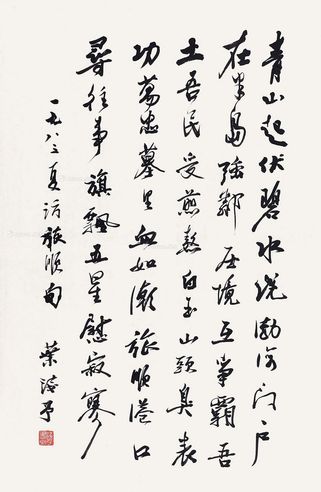 青山起伏碧水绕渤海门户
在半岛强鄰压境互争霸吾
土吾民受煎熬白玉山头臭表
功萬忠墓里血如潮旅顺港口
尋往事旗飘五星慰寂寥
一九八三夏访旅顺句
葉浅予